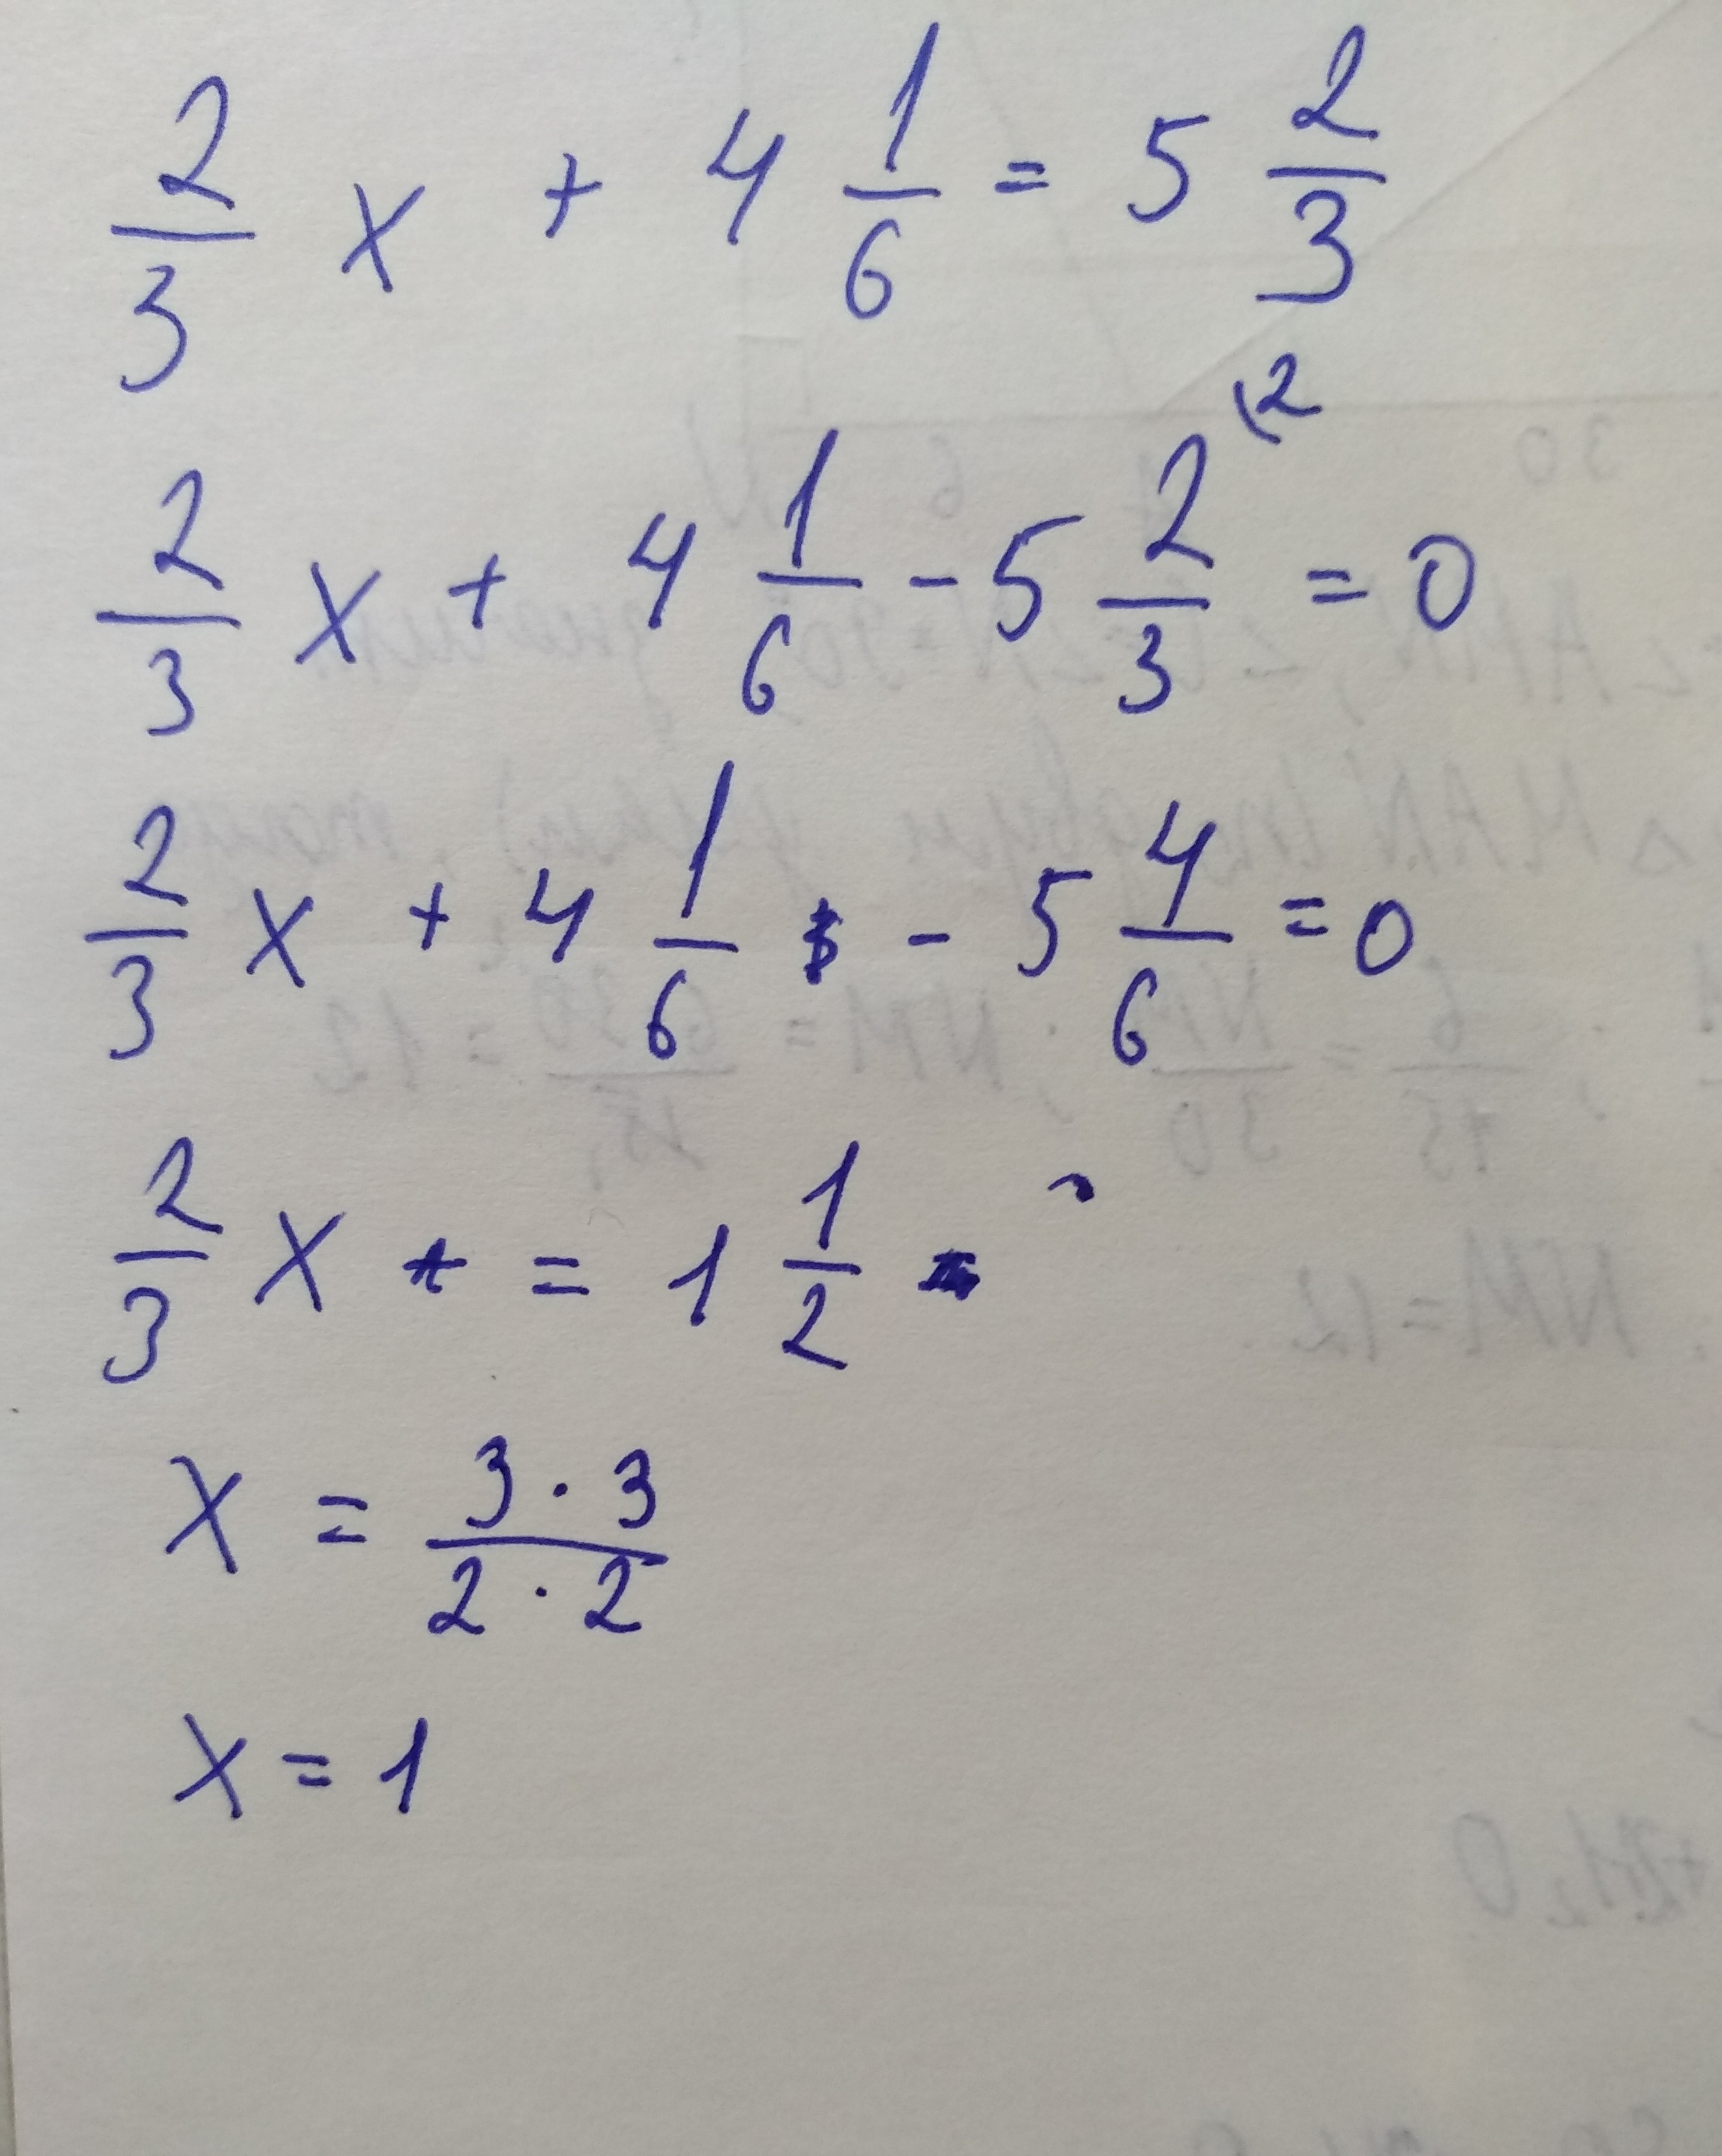 2/3 x + 4 1/6 = 5 2/3
2/3 x + 4 1/6 - 5 2/3 (2 = 0
2/3 x + 4 1/6 - 5 4/6 = 0
2/3 x = 1 1/2
x = 3 · 3 / 2 · 2
x = 1